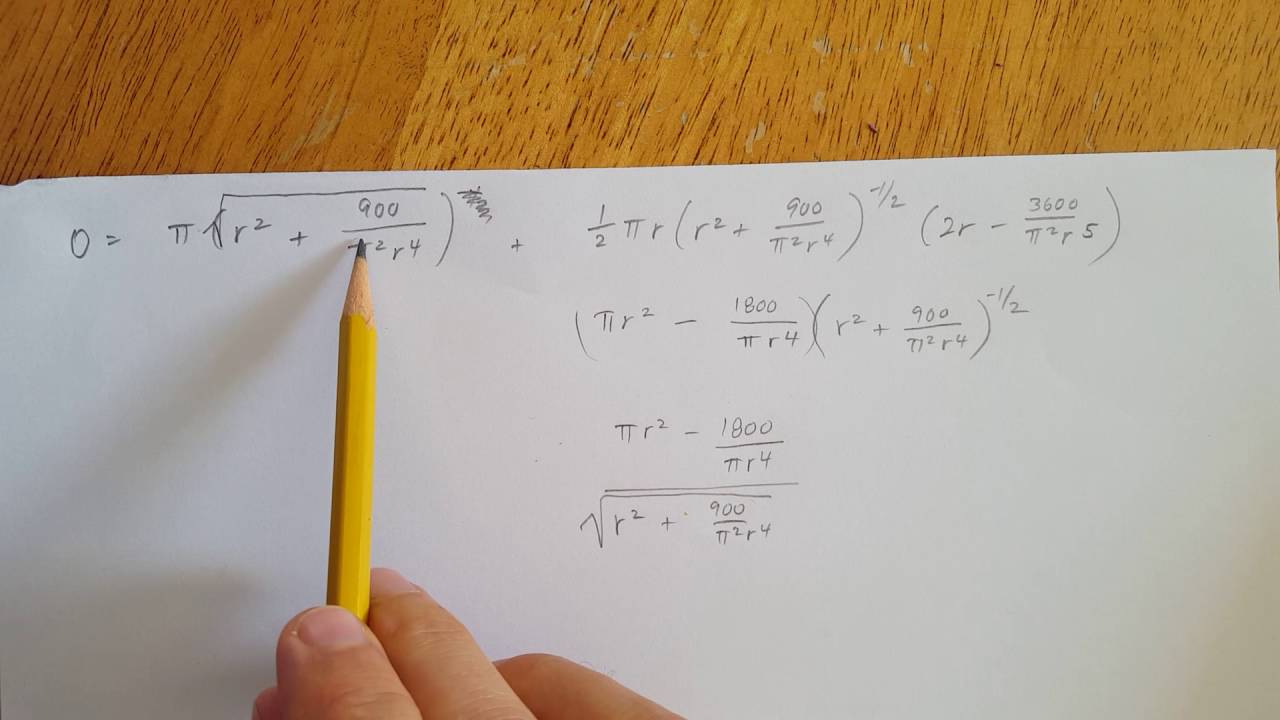 0 = π √(r² + 900/(π²r⁴)) ) + 1/2 πr (r² + 900/(π²r⁴))^(-1/2) (2r − 3600/(π²r5))
(πr² − 1800/(πr⁴)) (r² + 900/(π²r⁴))^(-1/2)
(πr² − 1800/(πr⁴)) / √(r² + 900/(π²r⁴))